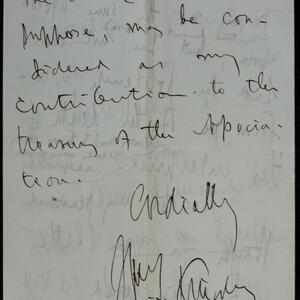 suppose, may be con-
sidered as my
contribution to the
treasury of the Associa-
tion.
Cordially